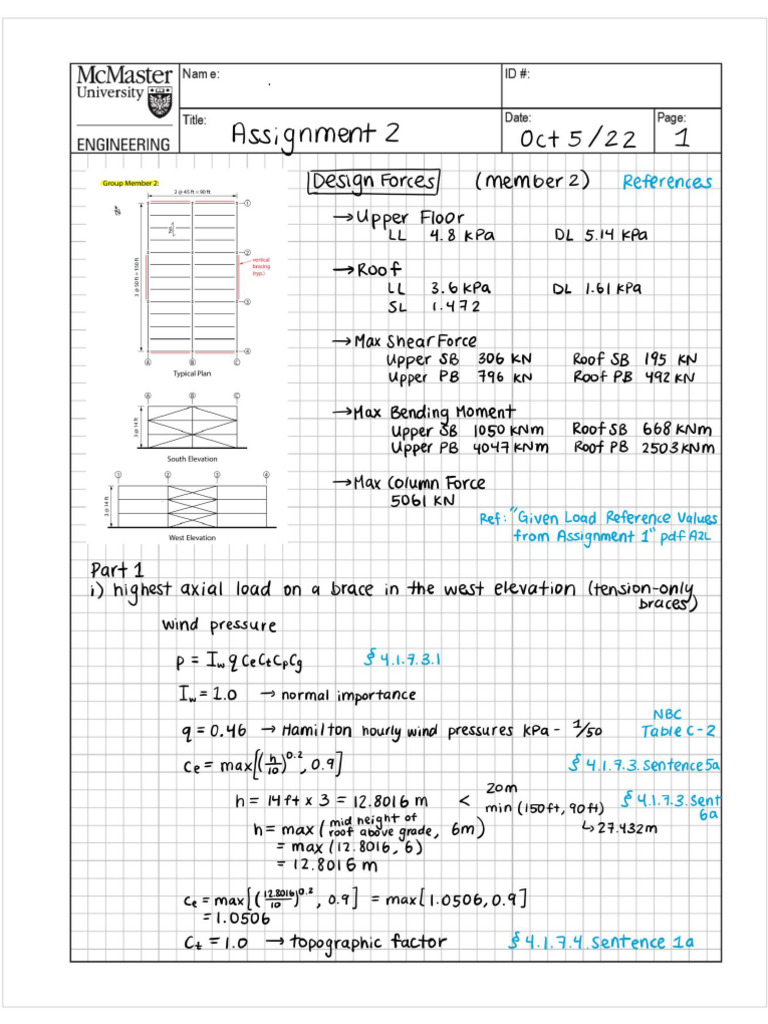 McMaster
University
ENGINEERING
Name:
ID #:
Title:
Assignment 2
Date:
Oct 5/22
Page:
1
Group Member 2:
2 @ 45 ft = 90 ft
3 @ 50 ft = 150 ft
vertical
bracing
(typ.)
1
2
3
4
A B C
Typical Plan
A B C
3 @ 14 ft
South Elevation
1 2 3 4
3 @ 14 ft
West Elevation
Design Forces (member 2) References
→ Upper Floor
LL 4.8 kPa DL 5.14 kPa
→ Roof
LL 3.6 kPa DL 1.61 kPa
SL 1.472
→ Max Shear Force
Upper SB 306 KN Roof SB 195 KN
Upper PB 796 KN Roof PB 492 KN
→ Max Bending Moment
Upper SB 1050 KNm Roof SB 668 KNm
Upper PB 4047 KNm Roof PB 2503 KNm
→ Max Column Force
5061 KN
Ref: "Given Load Reference Values
from Assignment 1" pdf A2L
Part 1
i) highest axial load on a brace in the west elevation (tension-only
braces)
wind pressure
p = Iw q Ce Ct Cp Cg § 4.1.7.3.1
Iw = 1.0 → normal importance
q = 0.46 → Hamilton hourly wind pressures kPa - 1/50 NBC
Table C-2
Ce = max[(h/10)^0.2, 0.9] § 4.1.7.3. Sentence 5a
h = 14 ft x 3 = 12.8016 m < 20m
min (150ft, 90ft) § 4.1.7.3. Sent
6a
↳ 27.432m
h = max (mid height of roof above grade, 6m)
= max (12.8016, 6)
= 12.8016 m
Ce = max[(12.8016/10)^0.2, 0.9] = max[1.0506, 0.9]
= 1.0506
Ct = 1.0 → topographic factor § 4.1.7.4. Sentence 1a